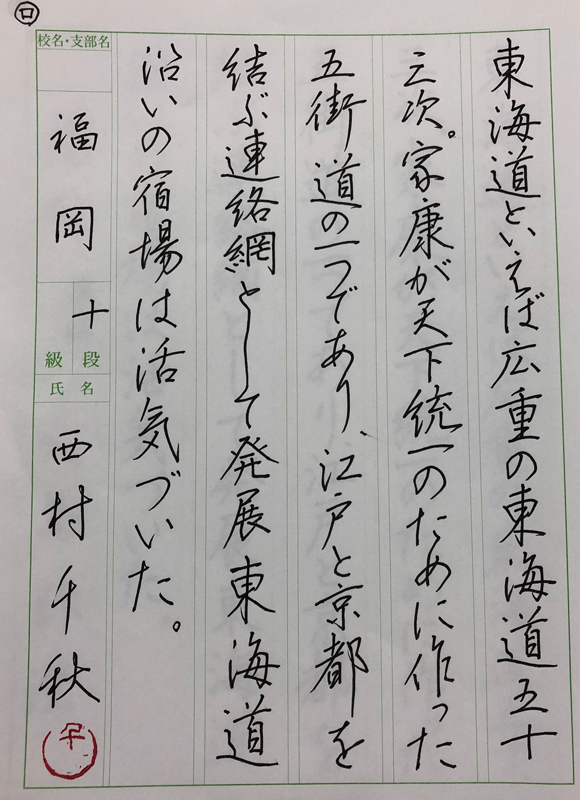 東海道といえば広重の東海道五十
三次。家康が天下統一のために作った
五街道の一つであり、江戸と京都を
結ぶ連絡網として発展東海道
沿いの宿場は活気づいた。
ロ
校名・支部名
福岡
十
級 段
氏名
西村千秋